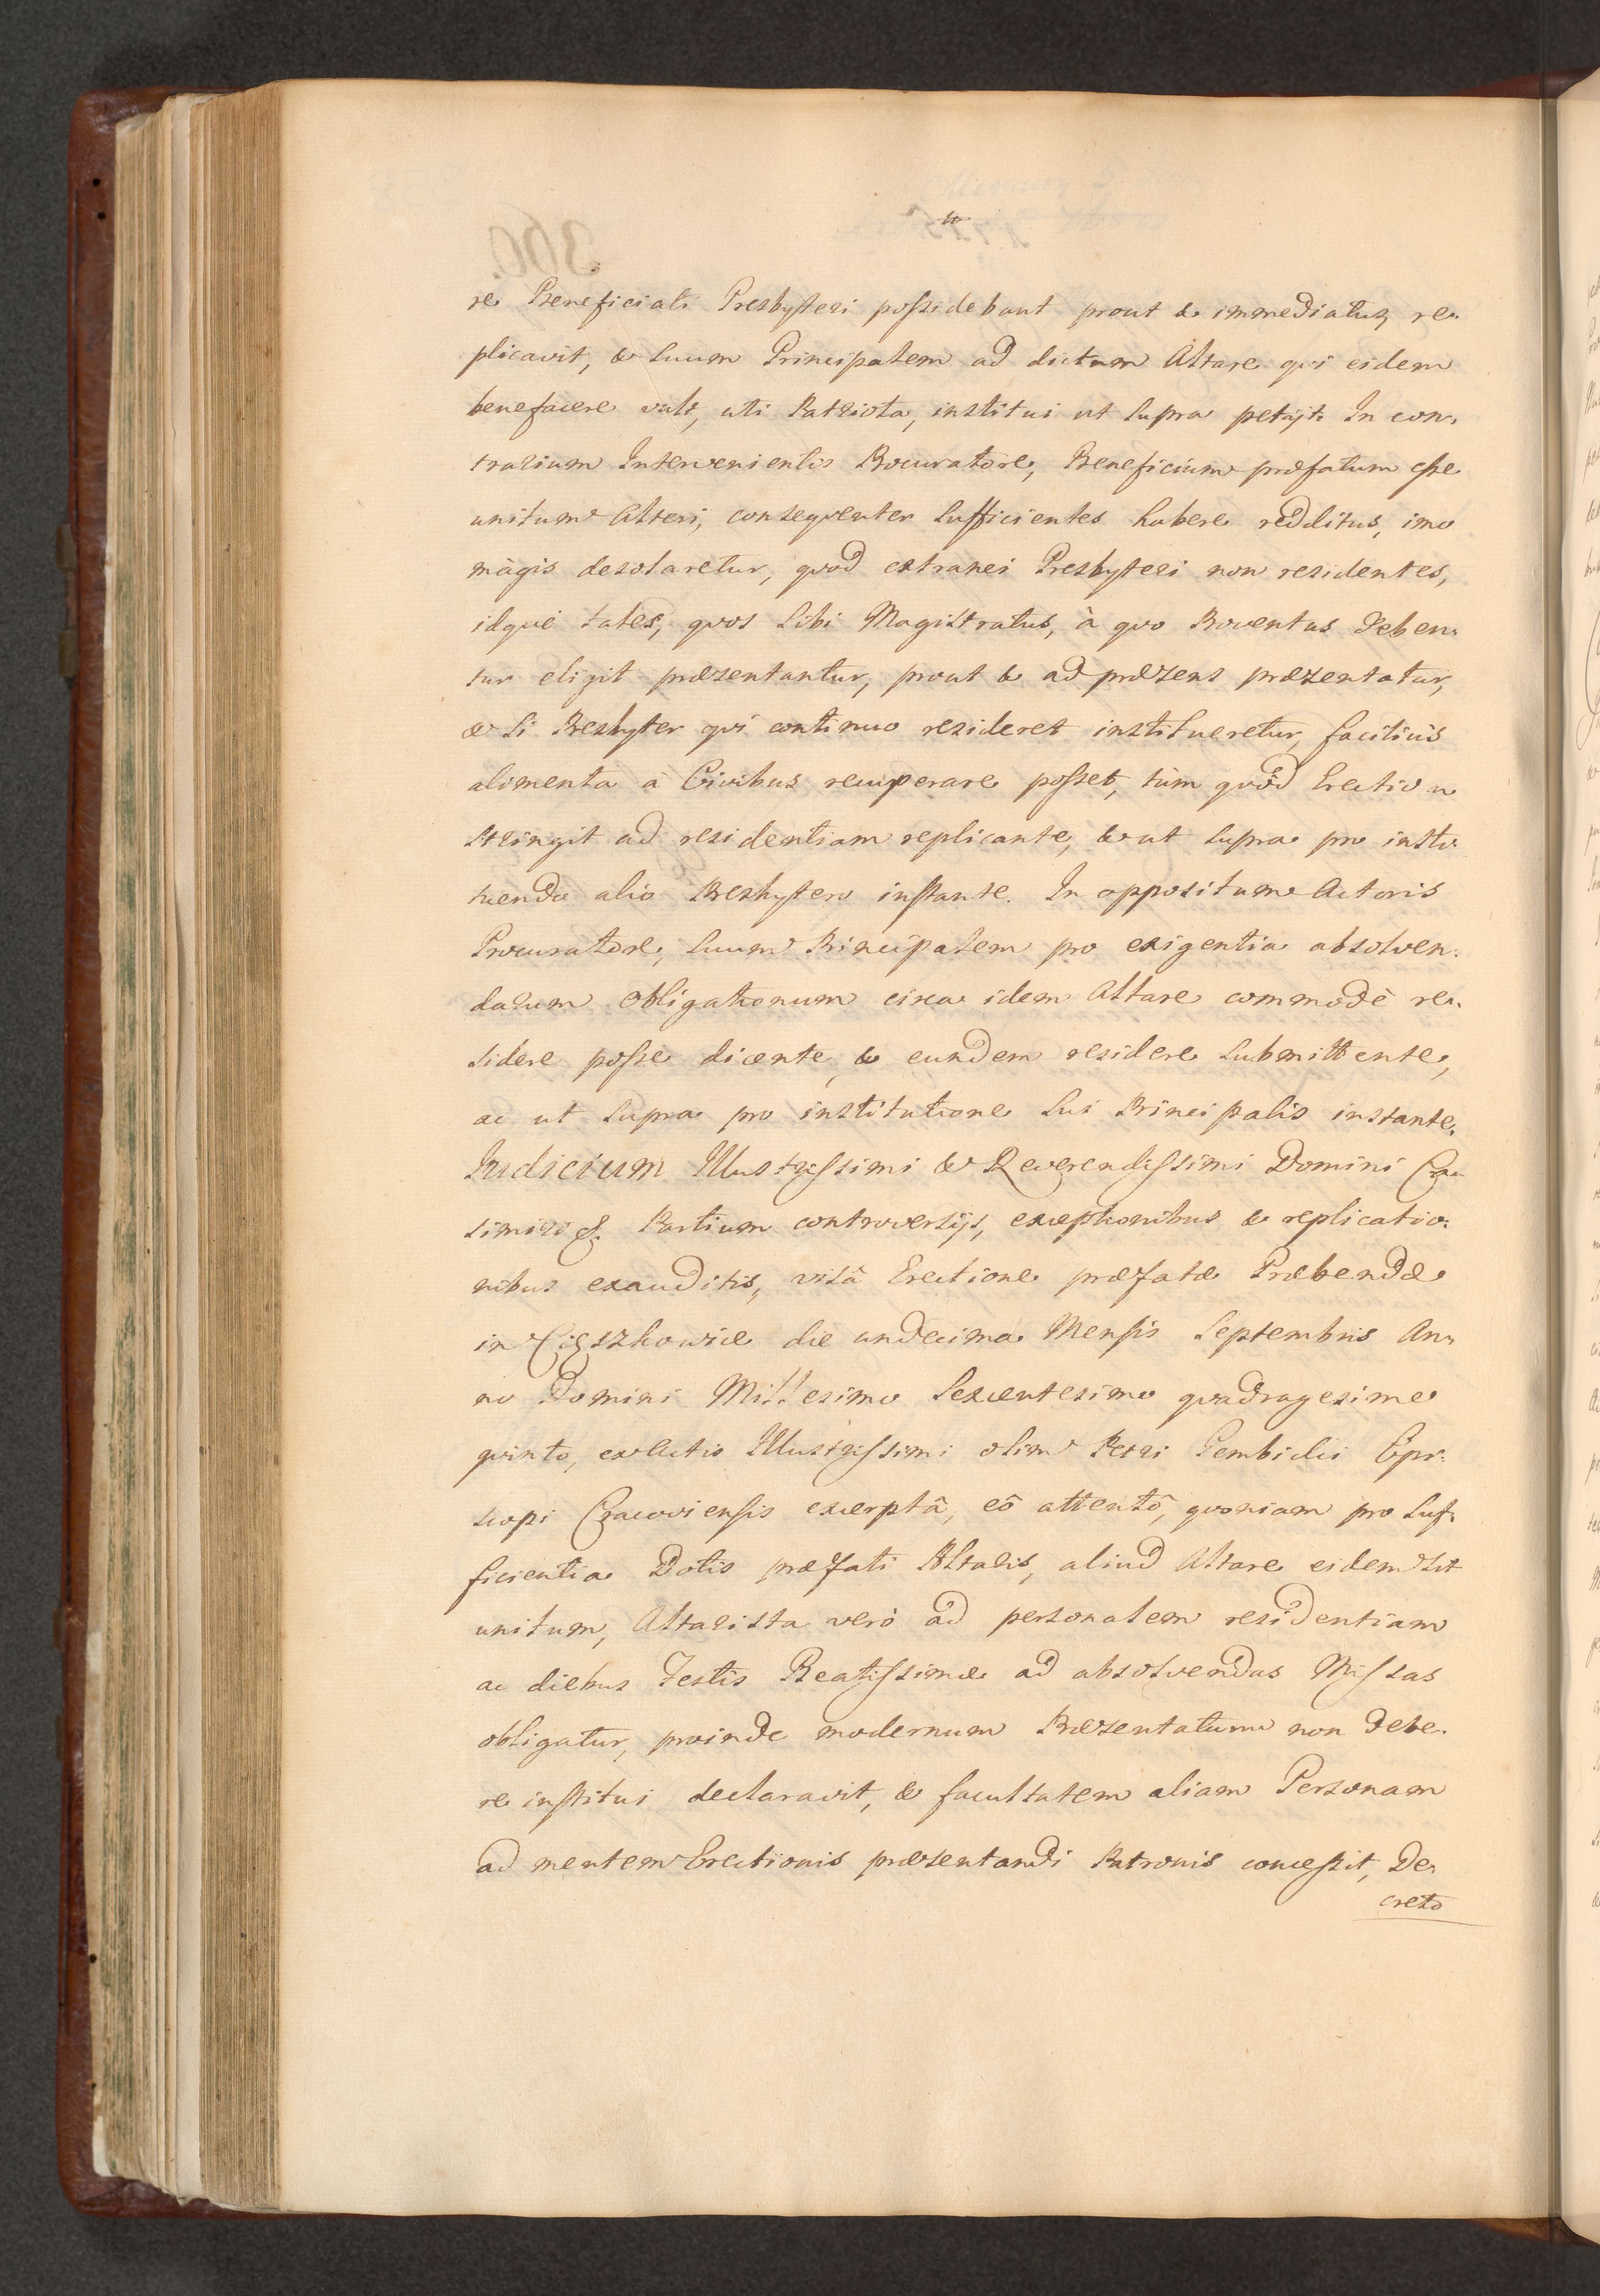 re Beneficiali Presbyteri possidebant prout & immediatus, re-
plicavit, & suum Principalem ad dictum Altare qvi eidem
benefacere vult, uti Patriota, institui ut supra petijt. In con-
trarium Intervenientis Procuratore, Beneficium præfatum esse
unitum Alteri, conseqventer sufficientes habere redditus, imo
màgis desolaretur, qvod extranei Presbyteri non residentes,
idqve tales, qvos sibi Magistratus, à qvo Proventus deben-
tur eligit præsentantur, prout & ad præsens præsentatur,
& si Presbyter qvi continuo resideret institueretur, faciliùs
alimenta à Civibus recuperare posset, tùm qvòd Erectio
stringit ad residentiam replicante, & ut supra pro insti-
tuendo alio Presbytero instante. In oppositum Actoris
Procuratore, suum Principalem pro exigentia absolven-
darum obligationum circa idem Altare commodè re-
sidere posse dicente, & eundem residere submittente,
ac ut supra pro institutione sui Principalis instante.
Judicium Illustrissimi & Reverendissimi Domini Ca-
simiri &. Partium controversijs, exceptionibus & replicatio-
nibus exauditis, visâ Erectione præfatæ Præbendæ
in Cięszkowice die undecima Mensis Septembris An-
no Domini Millesimo Sexcentesimo qvadragesimo
qvinto, ex Actis Illustrissimi olim Petri Gembicki Epi-
scopi Cracoviensis excerptâ, eô attentô, qvoniam pro suf-
ficientia Dotis præfati Altaris, aliud Altare eidem sit
unitum, Altarista verò ad personalem residentiam
ac diebus Festis Beatissimæ ad absolvendas Missas
obligatur, proinde modernum Præsentatum non debe-
re institui declaravit, & facultatem aliam Personam
ad mentem Erectionis præsentandi Patronis concessit, De-
creto